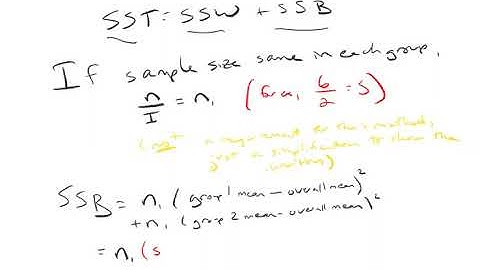 SST = SSW + SSB
If sample size same in each group,
n/I = n₁ (for ex, 6/2 = 3)
(not a requirement for this method, just a simplification to show the
SSB = n₁ (group 1 mean - overall mean)²
+ n₁ (group 2 mean - overall mean)²
= n₁ (s